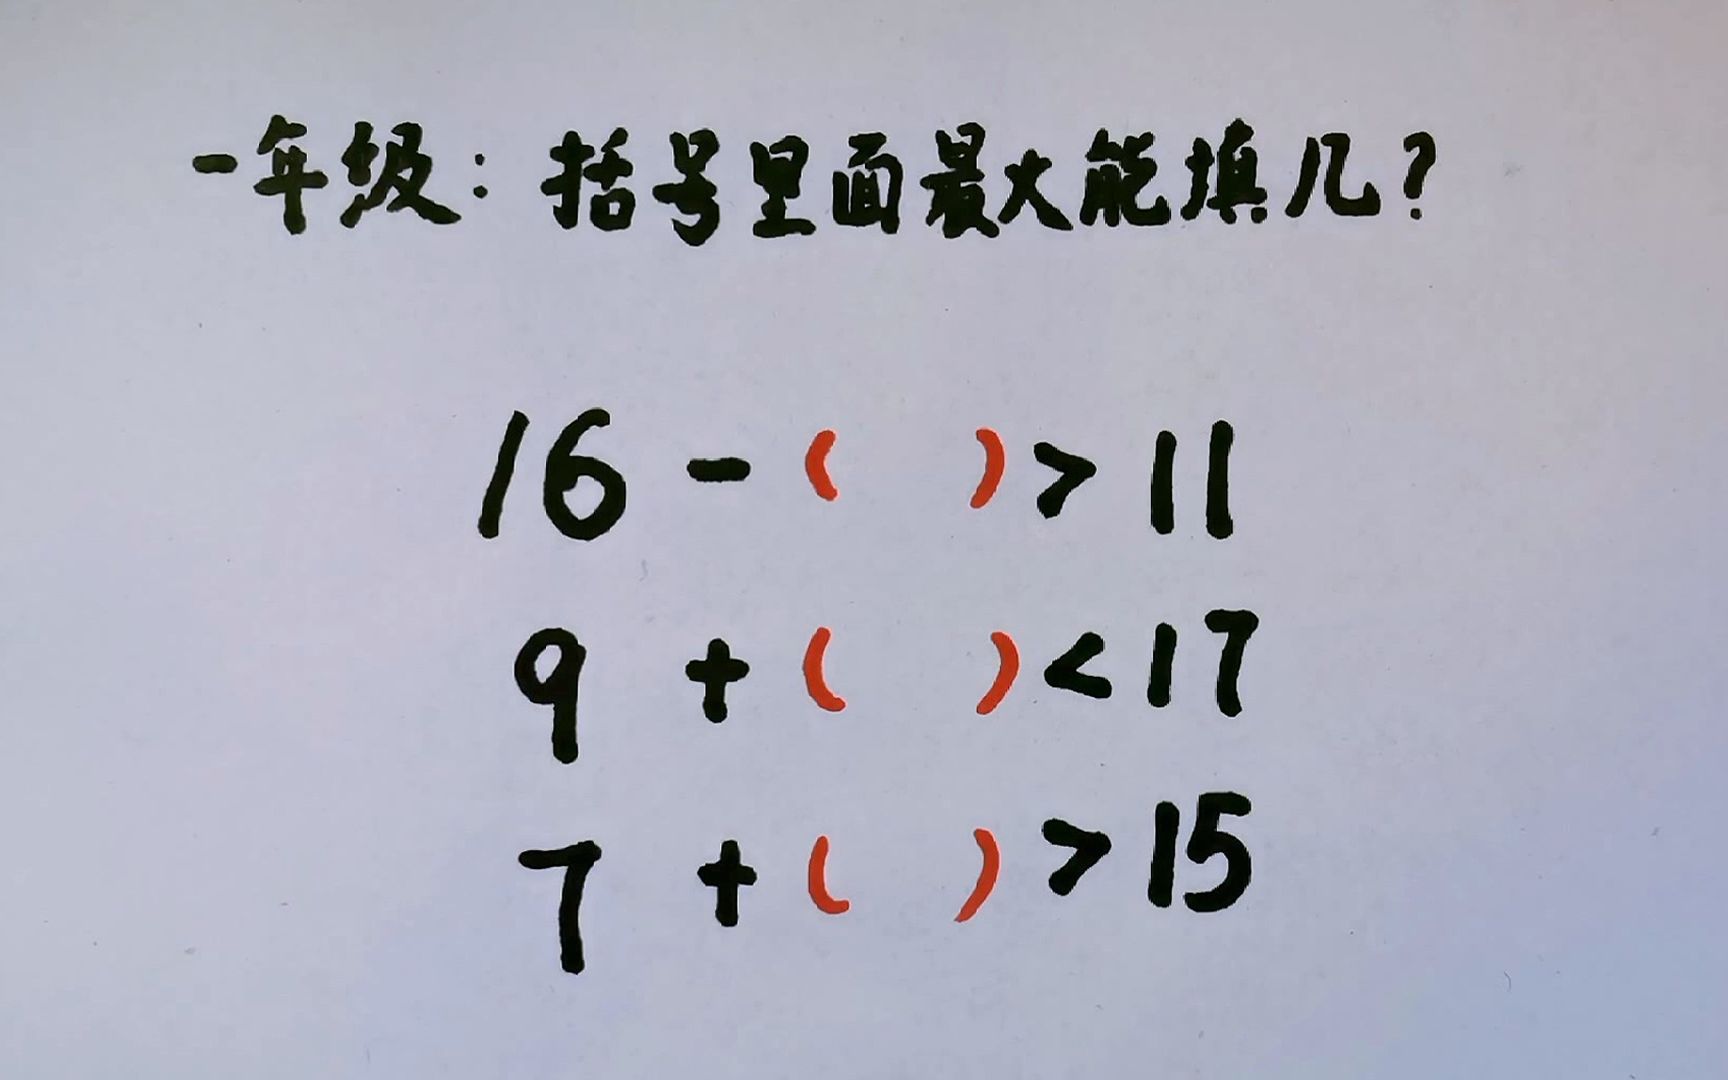 一年级：括号里面最大能填几？
16 - (    ) > 11
9 + (    ) < 17
7 + (    ) > 15